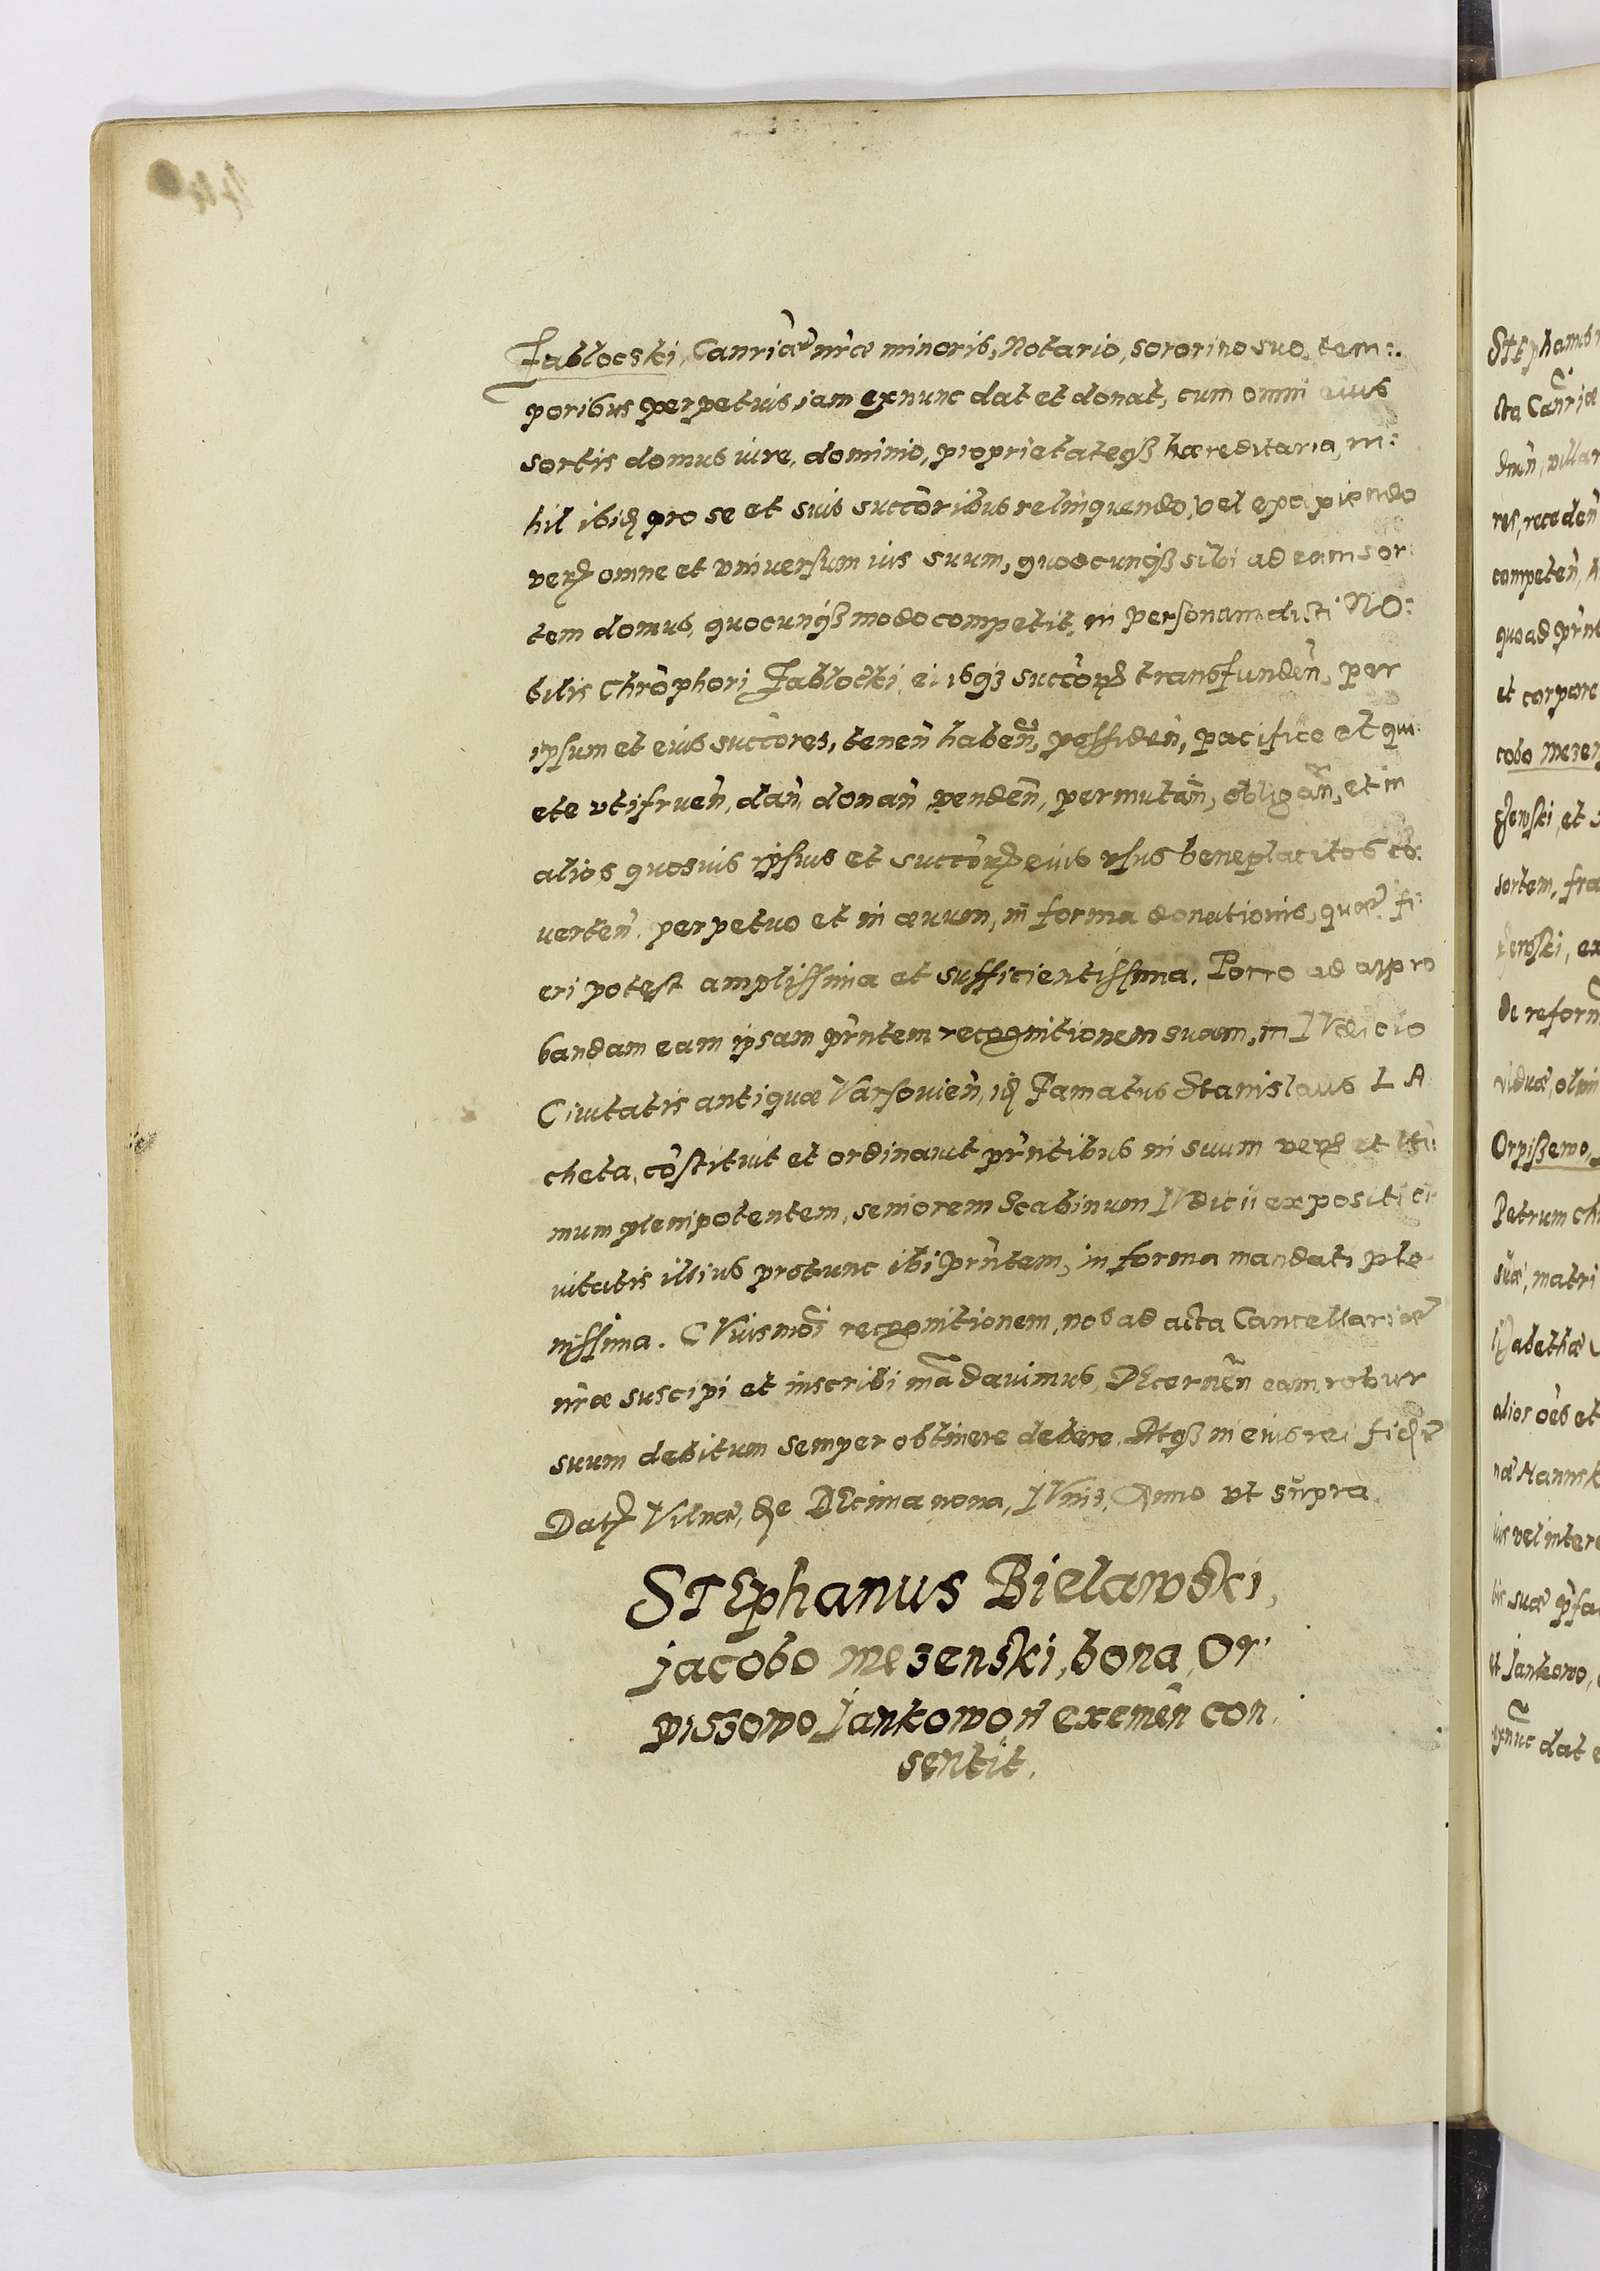 Jablocski, Canriæ nr̃æ minoris, Notario, sororino suo, tem:
poribus perpetuis, iam exnunc dat et donat, cum omni eius
sortis domus iure, dominio, proprietateqȝ hæreditaria, ni:
hil ibid̃ pro se et suis succõribus relinquendo, vel excipiendo
verũ omne et vniuersum ius suum, quodcunqȝ sibi ad eam sor
tem domus, quocunqȝ modo competit, in personam dicti NO:
bilis Chrõphori Jablocki, eiusqȝ succõrũ transfundeñ, per
ipsum et eius succõres, teneñ habeñ, possideñ, pacifice et qui
ete vtifrueñ, dañ, donañ, vendeñ, permutañ, obligañ, et in
alios quosuis ipsius et succõrũ eius vsus beneplacitos cõ:
verteñ, perpetuo et in æuum, in forma donationis, quæ fi:
eri potest amplissima et sufficientissima. Porro ad appro
bandam eam ipsam pr̃ntem recognitionem suam, in IVdicio
Ciuitatis antiquæ Varsouieñ, id̃ Famatus Stanislaus LA
cheta, cõstituit et ordinauit pr̃ntibus in suum verũ et ltĩ:
mum plenipotentem, seniorem Scabinum IVDicii expositi ci:
uitatis illius protunc ibi pr̃ntem, in forma mandati ple
nissima. CVuismõi recognitionem, nos ad acta Cancellariæ
nr̃æ suscipi et inscribi mãdauimus, DEcerneñ eam, robur
suum debitum semper obtinere debere. Atqȝ in eius rei fid̃
Datũ Vilnæ, die DEcima nona, IVnii, Anno vt supra
STEphanus Bielawski,
Jacobo Mezenski, bona, Or
piszowo Jankowo ñ exemeñ con
sentit.
STEphanus
cta Canriæ
res, recedeñ
competeñ,
quoad pr̃nt
et corpore
cobo Mezen
sortem, fra
de reforñ
viduæ, olim
Orpiszewo,
Petrum Ch
suæ, matri
alios oẽs et
ius vel inter
et Jankowo,
exnũc dat e